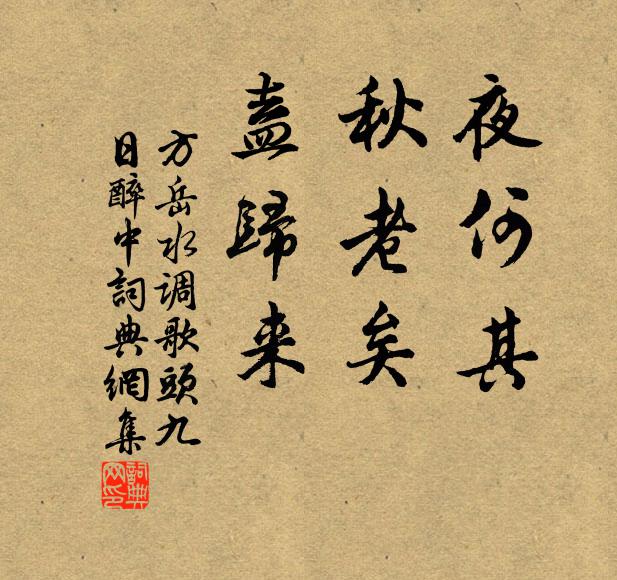 夜何其
秋老矣
盍歸来
方岳水调歌頭九
日醉中詞典網集
詞典
网印